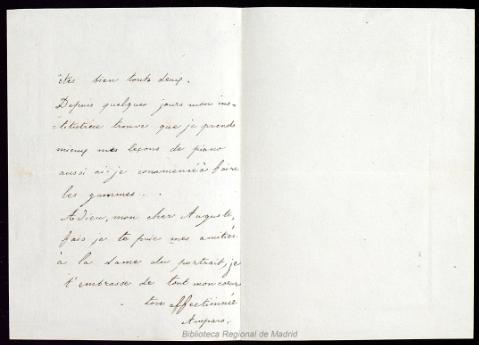 êtes bien touts deux.
Depuis quelques jours mon ins-
titutrice trouve que je prends
mieux mes leçons de piano
aussi ai-je commencé à faire
les gammes...
Adieu, mon cher Auguste,
fais je te prie mes amitiés
à la dame du portrait, je
t'embrasse de tout mon cœur
ton affectionnée
Amparo.
Biblioteca Regional de Madrid